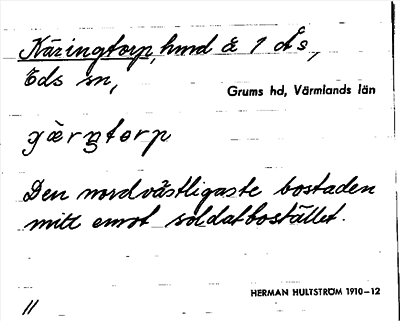 Näringtorp, hmd å 1 åS,
Eds sn,
Grums hd, Värmlands län
Den nordvästligaste bostaden
mitt emot soldatbostället.
HERMAN HULTSTRÖM 1910–12
11